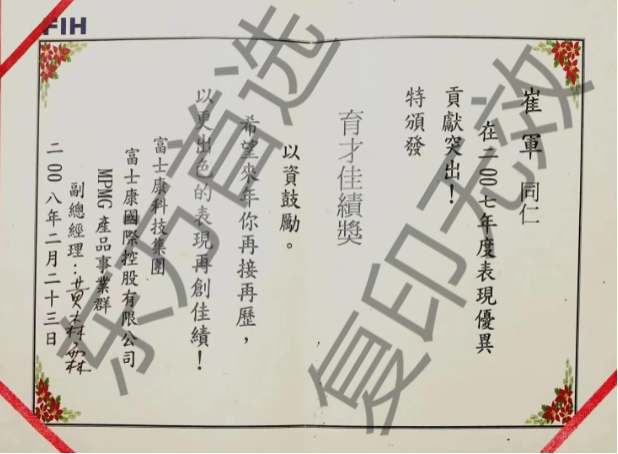 FIH
崔軍 同仁
在二00七年度表現優異
貢獻突出！
特頒發
育才佳績獎
以資鼓勵。
希望來年你再接再歷，
以更出色的表現再創佳績！
富士康科技集團
富士康國際控股有限公司
MPMG 產品事業群
副總經理：
二00八年二月二十三日
东方首选
复印无效